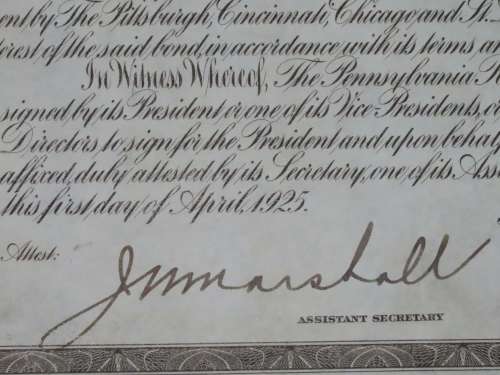 ent by The Pittsburgh, Cincinnati, Chicago and St.
erest of the said bond, in accordance with its terms a
In Witness Whereof, The Pennsylvania R
signed by its President or one of its Vice-Presidents, o
Directors, to sign for the President and upon behalf
affixed, duly attested by its Secretary, one of its Ass
this first day of April, 1925.
Attest:
J W Marshall
ASSISTANT SECRETARY